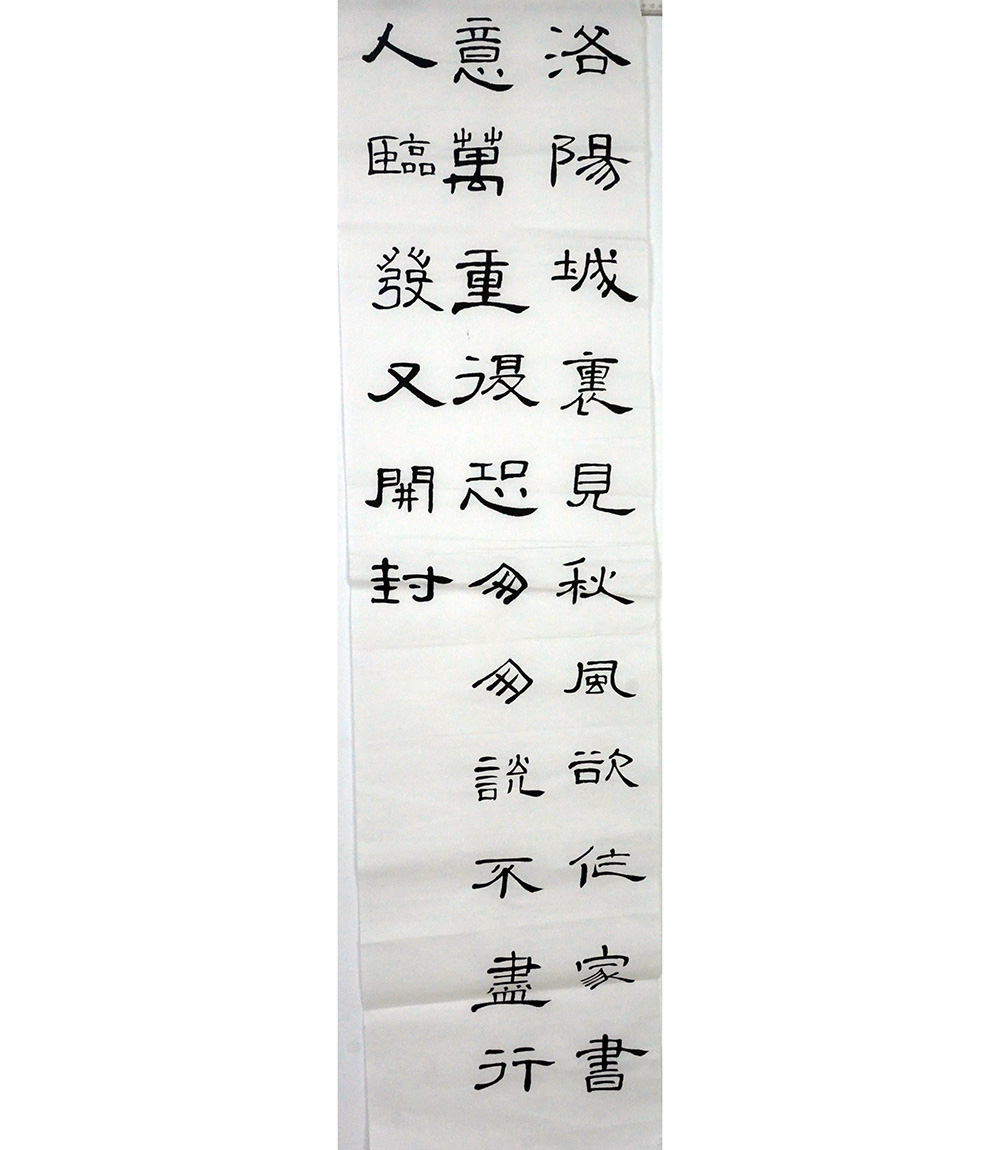 洛陽城裏見秋風欲作家書
意萬重復恐匆匆說不盡行
人臨發又開封